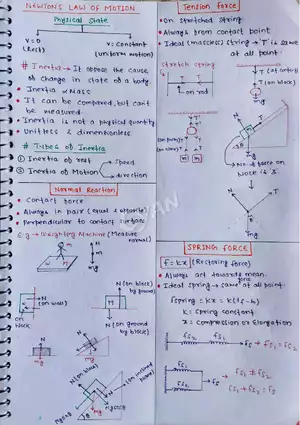 NEWTON'S LAW OF MOTION
Physical State
V=0
(Rest)
V=constant
(uniform motion)
# Inertia → It oppose the cause
of change in state of a body.
• Inertia ∝ Mass
• It can be compared, but can't
be measured
• Inertia is not a physical quantity
• Unitless & dimensionless
# Types of Inertia
① Inertia of rest
② Inertia of Motion
Speed
direction
Normal Reaction
• Contact force
• Always in pair (equal & opposite)
• Perpendicular to contact surface
E.g → Weighting Machine (Measure
normal)
N
m
mg
N
(on wall)
N
on
block
N (on block)
by ground
N
(on ground)
by block
mg
mg
N
(on block)
N
(on inclined
plane)
mg
Tension force
• On stretched string
• Always from contact point
• Ideal (massless) string → T is same
at all point.
stretch string
T T
→ on rod
T (at ceiling)
T
(on block)
T
mg
T
T
m m
T
N
mg
No. of force on
block is 3
N
T
mg
SPRING FORCE
F = kx (Restoring force)
• Always act towards mean.
• Ideal spring → same force at all point.
Fspring = kx = k(l₂-l₁)
k = spring constant
x = compression or Elongation